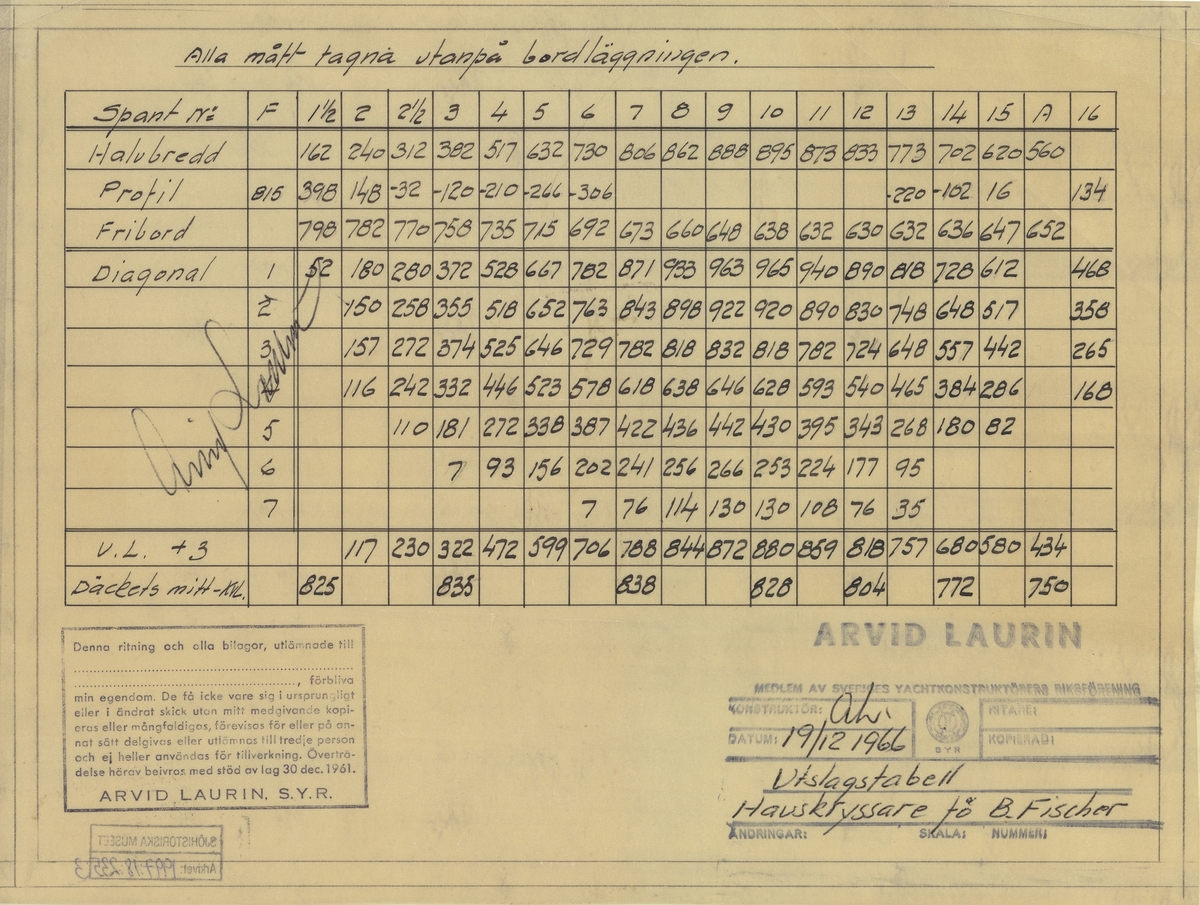 Alla mått tagna utanpå bordläggningen.
Spant No: F 1½ 2 2½ 3 4 5 6 7 8 9 10 11 12 13 14 15 A 16
Halvbredd 162 240 312 382 517 632 730 806 862 888 895 873 833 773 702 620 560
Profil 815 398 148 -32 -120 -210 -266 -306 -220 -102 16 134
Fribord 798 782 770 758 735 715 692 673 660 648 638 632 630 632 636 647 652
Diagonal 1 52 180 280 372 528 667 782 871 933 963 965 940 890 818 728 612 468
2 150 258 355 518 652 763 843 898 922 920 890 830 748 648 517 358
3 157 272 374 525 646 729 782 818 832 818 782 724 648 557 442 265
116 242 332 446 523 578 618 638 646 628 593 540 465 384 286 168
5 110 181 272 338 387 422 436 442 430 395 343 268 180 82
6 7 93 156 202 241 256 266 253 224 177 95
7 7 76 114 130 130 108 76 35
V.L. +3 117 230 322 472 599 706 788 844 872 880 859 818 757 680 580 434
Däckets mitt-KVL. 825 835 838 828 804 772 750
Arvid Laurin
Denna ritning och alla bilagor, utlämnade till
............................................................
................................................, förbliva
min egendom. De få icke vare sig i ursprungligt
eller i ändrat skick utan mitt medgivande kopi-
eras eller mångfaldigas, förevisas för eller på an-
nat sätt delgivas eller utlämnas till tredje person
och ej heller användas för tillverkning. Överträ-
delse härav beivras med stöd av lag 30 dec. 1961.
ARVID LAURIN, S.Y.R.
SJÖHISTORISKA MUSEET
Arkivet: 1997:18:235:3
ARVID LAURIN
MEDLEM AV SVERIGES YACHTKONSTRUKTÖRERS RIKSFÖRENING
KONSTRUKTÖR: RITARE:
DATUM: 19/12 1966 SYR KOPIERAD:
Utslagstabell
Havskryssare fö B. Fischer
ÄNDRINGAR: SKALA: NUMMER: